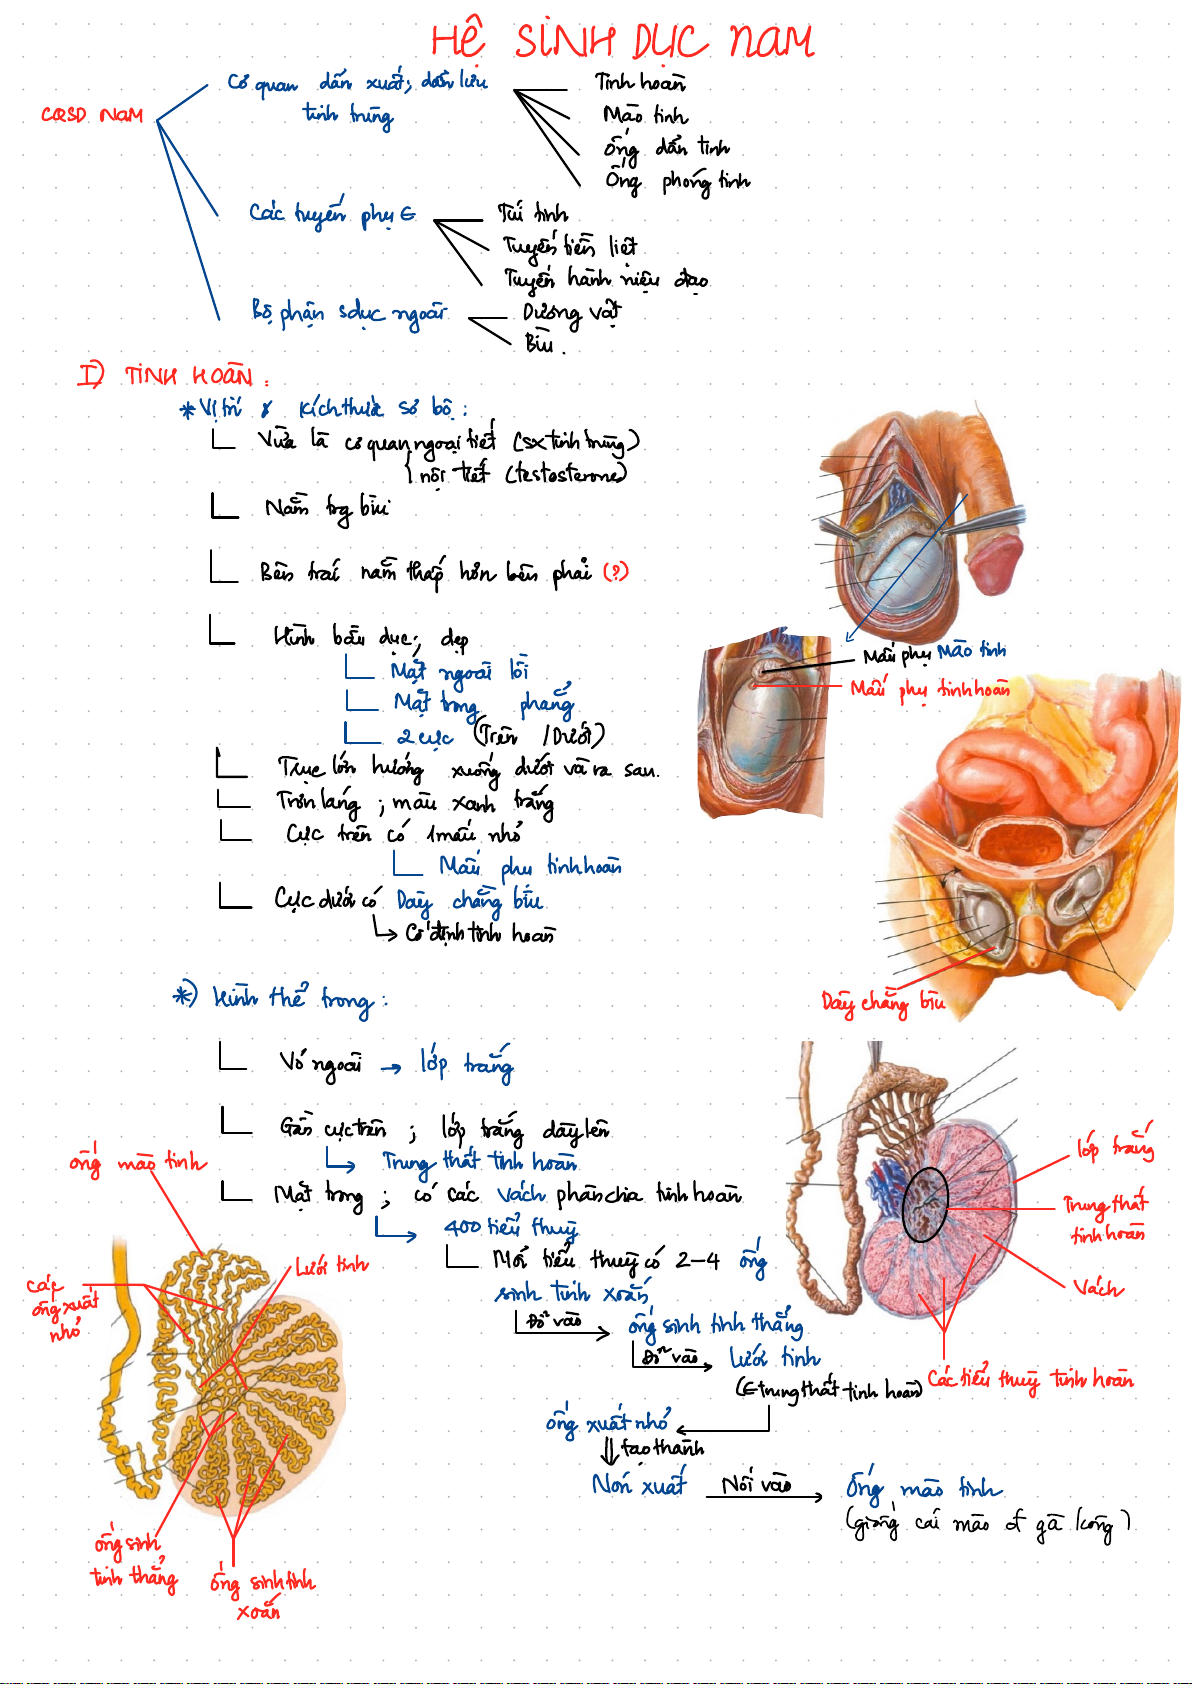 HỆ SINH DỤC NAM
CQSD NAM
Cơ quan sản xuất, dẫn lưu
tinh trùng
Tinh hoàn
Mào tinh
Ống dẫn tinh
Ống phóng tinh
Các tuyến phụ ∈
Túi tinh
Tuyến tiền liệt
Tuyến hành niệu đạo
Bộ phận sdục ngoài
Dương vật
Bìu.
I) TINH HOÀN:
* Vị trí & kích thước sơ bộ:
Vừa là cơ quan ngoại tiết (sx tinh trùng)
nội tiết (testosterone)
Nằm trg bìu
Bên trái nằm thấp hơn bên phải (?)
Hình bầu dục; dẹp
Mặt ngoài lồi
Mặt trong phẳng
2 cực (Trên / Dưới)
Trục lớn hướng xuống dưới và ra sau.
Trơn láng; màu xanh trắng
Cực trên có 1 mẩu nhỏ
Mẩu phụ tinh hoàn
Cực dưới có Dây chằng bìu
Cố định tinh hoàn
Mẩu phụ Mào tinh
Mẩu phụ tinh hoàn
Dây chằng bìu
*) Hình thể trong:
Vỏ ngoài → lớp trắng
Gần cực trên; lớp trắng dày lên
Trung thất tinh hoàn
Mặt trong; có các vách phân chia tinh hoàn
400 tiểu thuỳ
Mỗi tiểu thuỳ có 2-4 ống
sinh tinh xoắn
Đổ vào
ống sinh tinh thẳng
Đổ vào
lưới tinh
(∈ trung thất tinh hoàn)
ống xuất nhỏ
tạo thành
Nón xuất
Nối vào
Ống mào tinh
(giống cái mào of gà trống)
lớp trắng
Trung thất
tinh hoàn
Vách
Các tiểu thuỳ tinh hoàn
ống mào tinh
Lưới tinh
các
ống xuất
nhỏ
ống sinh
tinh thẳng
ống sinh tinh
xoắn